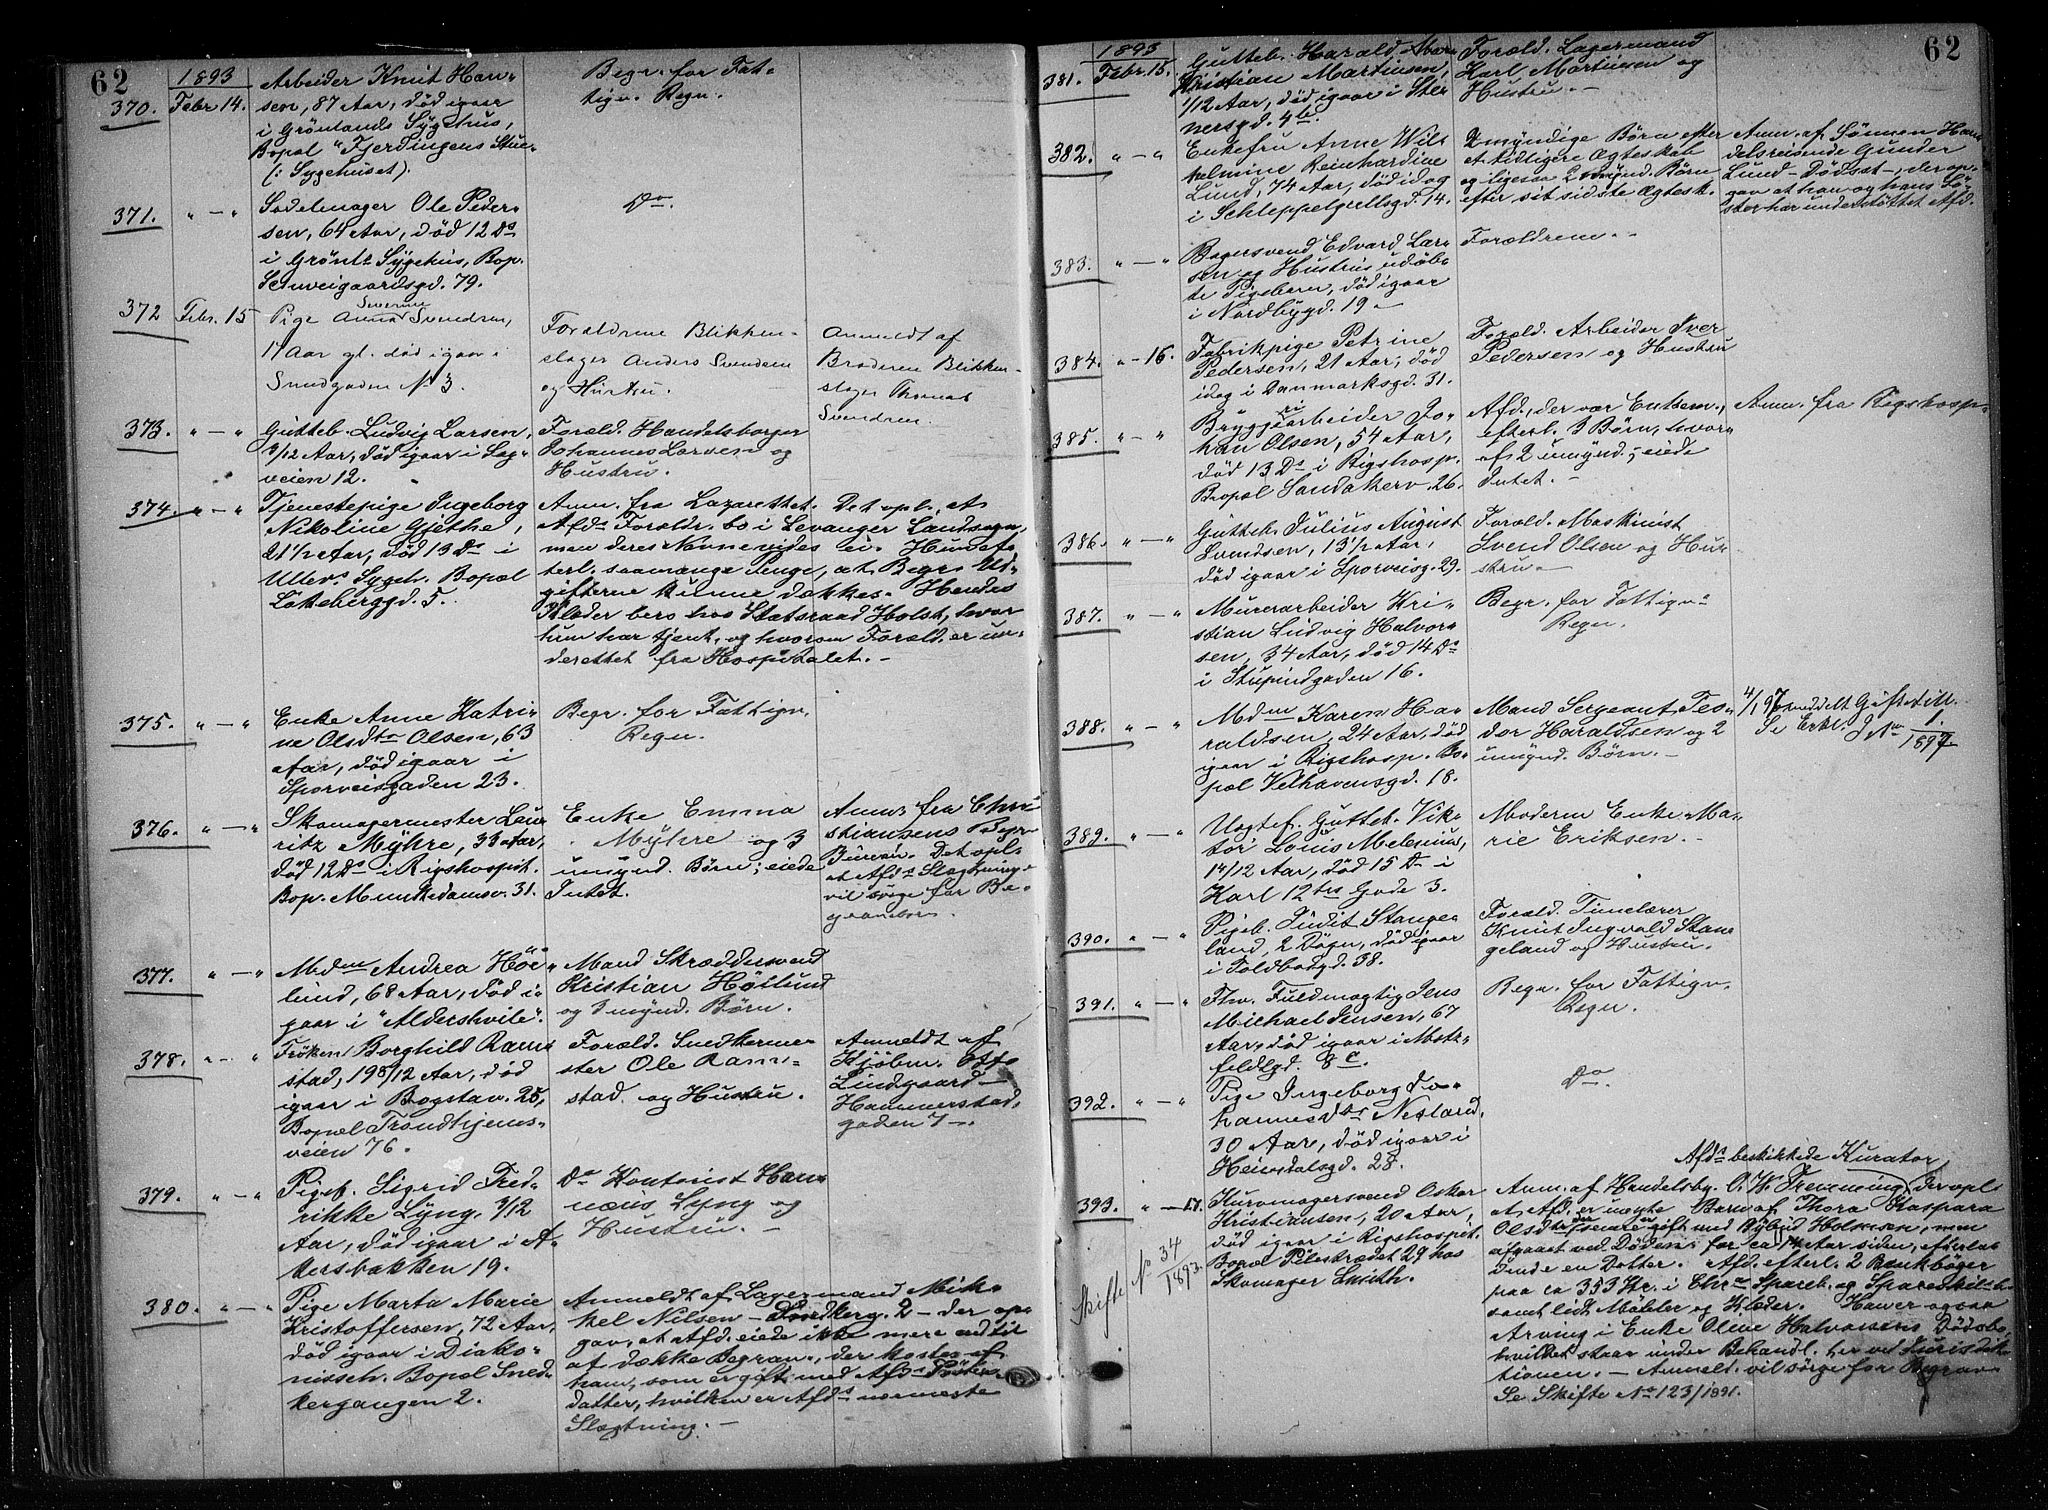 62
1893
370. Febr. 14. Arbeider Knut Han-
sen, 87 Aar, död igaar
i Grönlands Sygehus,
Bopæl "Fjerdingens Stue"
(: Sygehuset).
Begr. for Fat-
tigv. Regn.
371. " — " Sadelmager Ole Peder-
sen, 64 Aar, död 12 Ds
i Grönls Sygehus, Bop.
Schweigaardsgd. 79.
Do.
372 Febr. 15 Pige Anna Severine Svendsen,
17 Aar gl. död igaar i
Smedgaden No 3.
Forældrene Blikken-
slager Anders Svendsen
og Hustru.
Anmeldt af
Broderen Blikken-
slager Thomas
Svendsen.
373. " — " Gutteb. Ludvig Larsen,
/12 Aar, död igaar i
veien 12.
Foræld. Handelsborger
Johannes Larsen og
Hustru.
374. " — " Tjenestepige Ingeborg
Nikoline Gjethe,
21 1/2 Aar, död 13 Ds i
Ullev. Sygeh. Bopæl
Løkeberggd. 5.
Anm. fra Lazarettet. Det opl., at
Afds Forældr. bo i Levanger Landsogn,
men deres Navne vides ei. Hun ef-
terl. saamange Penge, at Begr. Ud-
gifterne kunne dækkes. Hendes
Klæder bero hos Statsraad Holst, hvor
hun har tjent, og hvorom Foræld. er un-
derettet fra Hospitalet. —
375. " — " Enke Anne Katri-
ne Olsdtr Olsen, 63
Aar, död igaar i
Sporveisgaden 23.
Begr. for Fattigv.
Regn.
376. " — " Skomagermester Lau-
ritz Myhre, 33 Aar,
död 12 Ds i Rigshospit.
Bop. Munkedamsv. 31.
Enke Emma
Myhre og 3
umynd. Börn; eiede
Intet.
Anm. fra Chri
stiansens Begr.
Büreau. Det opl.
at Afds Slægtninge
vil sörge for Be-
gravelsen.
377. " — " Mdm Andrea Höi-
lund, 68 Aar, död i-
gaar i "Aldershvile".
Mand Skræddersvend
Kristian Höilund
og 3 mynd. Börn.
378. " — " Fröken Borghild Ram-
stad, 19 8/12 Aar, död
igaar i Bogstav. 25,
Bopæl Trondhjems-
veien 76.
Foræld. Snedkerme-
ster Ole Ram-
stad og Hustru.
Anmeldt af
Kjöbm. Otto
Lindgaard —
Hammerstad-
gaden 7 —.
379. " — " Pigeb. Sigrid Fred-
rikke Lyng, 9/12
Aar, död igaar i A-
kersbakken 19.
Do Kontorist Han-
næus Lyng og
Hustru. —
380. " — " Pige Marta Marie
Kristoffersen, 72 Aar,
död igaar i Diako-
nissch. Bopæl Sned-
kergangen 2.
Anmeldt af Lagermand Mik-
kel Nilsen — Snedkerg. 2 — der op-
gav, at Afd. eiede ikke mere end til
at dække Begrav., der kostes af
ham, som er gift med Afds Söster-
datter, hvilken er Afds nærmeste
Slægtning. —
62
1893
381. Febr. 15. Gutteb. Harald
Kristian Martinsen,
1/12 Aar, död igaar i Ster
nersgd. 4b.
Foræld. Lagermand
Karl Martinsen og
Hustru. —
382. " — " Enkefru Anne Wil-
helmine Reinhardine
Lund, 74 Aar, död idag
i Schleppegrellsgd. 14.
2 myndige Börn efter
et tidligere Ægteskab
og ligesaa 2 mynd. Börn
efter sit sidste Ægtesk.
Anm. af Sönnen Han-
delsreisende Gunder
Lund — Dödsst —, der op-
gav at han og hans Sö-
ster har understöttet Afd.
383. " — " Bagersvend Edvard Lar-
sen og Hustrus udöb-
te Pigebarn, död igaar
i Nordbygd. 19. —
Forældrene. —
384. " - 16. Fabrikpige Petrine
Pedersen, 21 Aar, död
idag i Danmarksgd. 31.
Foræld. Arbeider Iver
Pedersen og Hustru
385. " — " Bryggeriarbeider Jo-
han Olsen, 54 Aar,
död 13 Ds i Rigshosp.
Bopæl Sandakerv. 26.
Afd., der var Enkem.,
efterl. 3 Börn, hvor-
af 2 umynd.; eiede
Intet. —
Anm. fra Rigshosp.
386. " — " Gutteb. Julius August
Svendsen, 13 1/2 Aar,
död igaar i Sporveisg. 29.
Foræld. Maskinist
Svend Olsen og Hu-
stru. —
387. " — " Murerarbeider Kri-
stian Ludvig Halvor-
sen, 34 Aar, död 14 Ds
i Stupindgaden 16.
Begr. for Fattigv.
Regn.
388. " — " Mdm Karen Ha-
raldsen, 24 Aar, död
igaar i Rigshosp. Bo-
pæl Velhavensgd. 18.
Mand Sergeant Teo-
dor Haraldsen og 2
umynd. Börn. —
4/1 97 meddelt Gifteatt.
Se Erkl. J No 1/1897
389. " — " Uægtef. Gutteb. Vik-
tor Louis Melenius,
14/12 Aar, död 15 Ds i
Karl 12tes Gade 3.
Moderen Enke Ma-
rie Eriksen. —
390. " — " Pigeb. Judit Stange-
land, 2 Dögn, död igaar
i Toldbodgd. 38.
Foræld. Timelærer
Knut Ingvald Stan-
geland og Hustru.
391. " — " Fhv. Fuldmægtig Jens
Michael Jensen, 67
Aar, död igaar i Molt-
feldtgd. 8c.
Begr. for Fattigv.
Regn.
392. " — " Pige Ingeborg Jo-
hannesdtr Nesland,
30 Aar, död igaar i
Heimdalsgd. 28.
Do.
393. " — 17. Buntmagersvend Oskar
Kristiansen, 20 Aar,
död igaar i Rigshospit.
Bopæl Pilestrædet 29 hos
Skomager Smith.
Skifte No 34/1893.
Afds beskikkede Kurator
Anm. af Handelsbg. O. W. Flemming, der opl.
at Afd. er uægte Barn af Thora Kaspara
Olsdtr, der senere er gift med Holmsen, men
afgaaet ved Döden for ca 14 Aar siden, efterla-
dende en Datter. Afd. efterl. 2 Bankböger
paa ca 353 Kr. i Chra Spareb. og
samt lidt Möbler og Klæder. Han er ogsaa
Arving i Enke Olene Halvorsens Dödsbo,
hvilket staar under Behandl. her ved Jurisdik-
tionen. — Anmeld. vil sörge for Begrav.
Se Skifte No 123/1891.